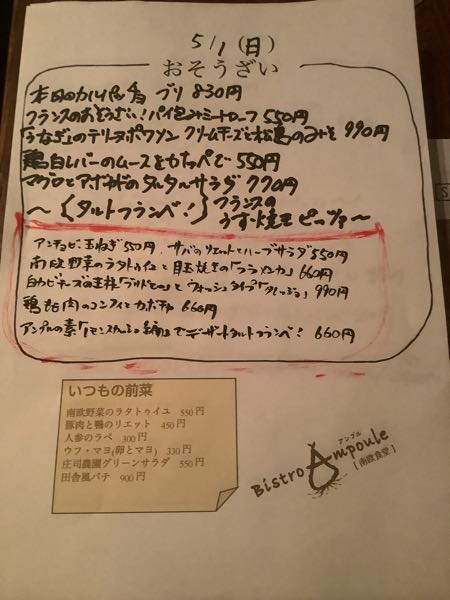 5/1 (日)
おそうざい
本日のカルパッチョ ブリ 830円
フランスのおそうざい!パイ包みミートローフ 550円
「うなぎ」のテリーヌポワソン クリームチーズと 990円
鶏白レバーのムースをカナッペで 550円
マグロとアボカドのタルタルサラダ 770円
～{タルトフランベ!}フランスの
うす焼きピッツァ～
アンチョビ、玉ねぎ 550円 サバのリエットとハーブサラダ 550円
南欧野菜のラタトゥイユと目玉焼きの「フラメンカ」 660円
白カビチーズの王様 とウォッシュタイプ 990円
鶏 肉のコンフィとカボチャ 660円
アンプルの素 デザートタルトフランベ! 660円
いつもの前菜
南欧野菜のラタトゥイユ 550円
豚肉と鴨のリエット 450円
人参のラペ 300円
ウフ・マヨ(卵とマヨ) 330円
庄司農園グリーンサラダ 550円
田舎風パテ 900円
アンプル
Bistro Ampoule
[南欧食堂]